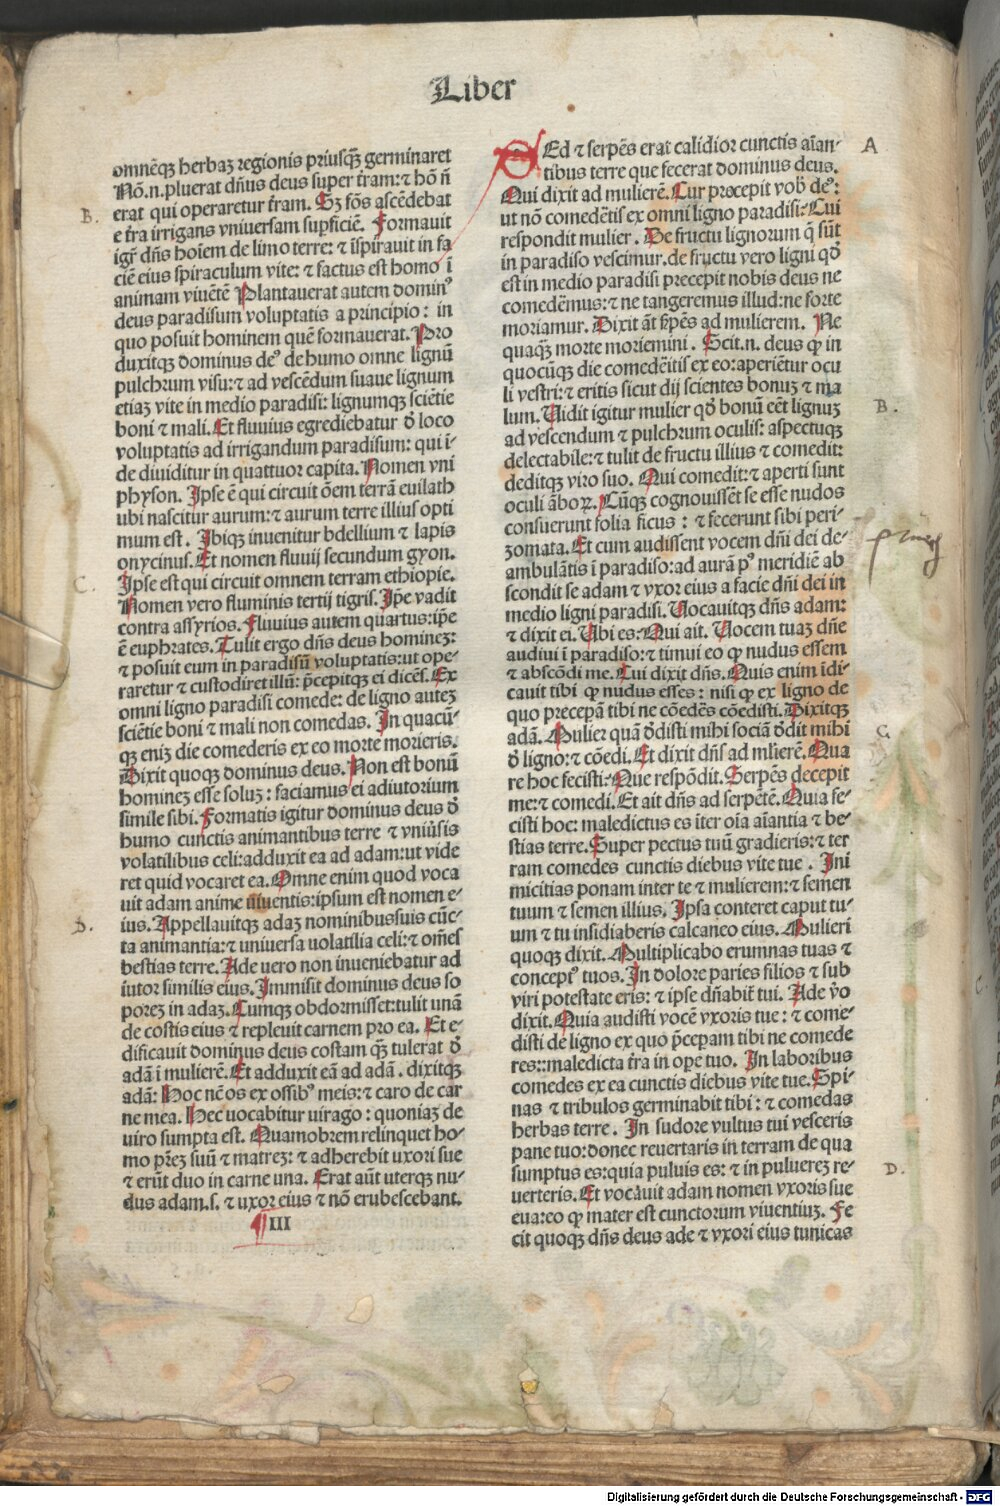 Liber
omnēqꝫ herbaꝫ regionis priusqꝫ̄ germinaret
Nō.n.pluerat dn̄us deus super t̄ram:⁊ hō n̄
erat qui operaretur t̄ram. Sꝫ fōs ascēdebat
e t̄ra irrigans vniuersam suꝑficiē. Formauit
igr̄ dn̄s hoīem de limo terre: ⁊ īspirauit in fa
ciē eius spiraculum vite: ⁊ factus est homo ī
animam viuētē Plantauerat autem dominꝰ
deus paradisum voluptatis a principio: in
quo posuit hominem quē formauerat. Pro
duxitqꝫ dominus deꝰ de humo omne lignū
pulchrum visu:⁊ ad vescēdum suaue lignum
etiaꝫ vite in medio paradisi: lignumqꝫ sciētie
boni ⁊ mali. Et fluuius egrediebatur d̄ loco
voluptatis ad irrigandum paradisum: qui ī-
de diuiditur in quattuor capita. Nomen vni
physon. Ipse ē qui circuit ōem terrā euilath
ubi nascitur aurum:⁊ aurum terre illius opti
mum est. Ibiqꝫ inuenitur bdellium ⁊ lapis
onycinus. Et nomen fluuij secundum gyon.
Ipse est qui circuit omnem terram ethiopie.
Nomen vero fluminis tertij tigris. Ip̄e vadit
contra assyrios. Fluuius autem quartus:ip̄e
ē euphrates. Tulit ergo dn̄s deus homineꝫ:
⁊ posuit eum in paradisū voluptatis:ut ope-
raretur ⁊ custodiret illū: p̄cepitqꝫ ei dicēs. Ex
omni ligno paradisi comede: de ligno auteꝫ
sciētie boni ⁊ mali non comedas. In quacū-
qꝫ eniꝫ die comederis ex eo morte morieris.
Dixit quoqꝫ dominus deus. Non est bonū
homineꝫ esse soluꝫ: faciamus ei adiutorium
simile sibi. Formatis igitur dominus deus d̄
humo cunctis animantibus terre ⁊ vniūsis
volatilibus celi:adduxit ea ad adam:ut vide
ret quid vocaret ea. Omne enim quod voca
uit adam anime uiuentis:ipsum est nomen e-
ius. Appellauitqꝫ adaꝫ nominibus suis cūc-
ta animantia:⁊ uniuersa uolatilia celi:⁊ om̄es
bestias terre. Ade vero non inueniebatur ad
iutor similis eius. Immisit dominus deus so
poreꝫ in adaꝫ. Cumqꝫ obdormisset:tulit unā
de costis eius ⁊ repleuit carnem pro ea. Et e-
dificauit dominus deus costam qꝫ̄ tulerat d̄
adā ī mulierē. Et adduxit eā ad adā. dixitqꝫ
adā: Hoc nēc os ex ossibꝰ meis: ⁊ caro de car
ne mea. Hec uocabitur uirago: quoniaꝫ de
viro sumpta est. Quamobrem relinquet ho-
mo p̄reꝫ suū ⁊ matreꝫ: ⁊ adherebit vxori sue
⁊ erūt duo in carne una. Erat aūt uterqꝫ nu-
dus adam.s. ⁊ uxor eius ⁊ nō erubescebant.
¶ III
SEd ⁊ serpēs erat calidior cunctis aīan-
tibus terre que fecerat dominus deus.
Qui dixit ad mulierē. Cur precepit vob̄ deꝰ:
ut nō comedētis ex omni ligno paradisi: Cui
respondit mulier. De fructu lignorum q̄ sūt
in paradiso vescimur.de fructu vero ligni qd̄
est in medio paradisi precepit nobis deus ne
comedēmus:⁊ ne tangeremus illud:ne forte
moriamur. Dixit āt s̄rpēs ad mulierem. Ne
quaqꝫ̄ morte moriemini. Scit.n. deus ꝙ in
quocūqꝫ die comedēitis ex eo:aperiētur ocu
li vestri:⁊ eritis sicut dij scientes bonuꝫ ⁊ ma
lum. Uidit igitur mulier qd̄ bonū eēt lignuꝫ
ad vescendum ⁊ pulchrum oculis: aspectuqꝫ
delectabile:⁊ tulit de fructu illius ⁊ comedit:
deditqꝫ viro suo. Qui comedit:⁊ aperti sunt
oculi āboꝝ. Cūqꝫ cognouissēt se esse nudos
consuerunt folia ficus: ⁊ fecerunt sibi peri-
zomata. Et cum audissent vocem dn̄i dei de-
ambulātis ī paradiso:ad aurā pꝰ meridiē ab
scondit se adam ⁊ vxor eius a facie dn̄i dei in
medio ligni paradisi. Uocauitqꝫ dn̄s adam:
⁊ dixit ei. Ubi es: Qui ait. Uocem tuaꝫ dn̄e
audiui ī paradiso:⁊ timui eo ꝙ nudus essem
⁊ abscōdi me. Cui dixit dn̄s. Quis enim īdi-
cauit tibi ꝙ nudus esses: nisi ꝙ ex ligno de
quo precepā tibi ne cōedēs cōedisti. Dixitqꝫ
adā. Mulier quā d̄disti mihi sociā d̄dit mihi
d̄ ligno: ⁊ cōedi. Et dixit dn̄s ad ml̄ierē. Qua
re hoc fecisti: Que respōdit. Serpēs decepit
me:⁊ comedi. Et ait dn̄s ad serpētē. Quia fe-
cisti hoc: maledictus es īter oīa aīantia ⁊ be-
stias terre. Super pectus tuū gradieris:⁊ ter
ram comedes cunctis diebus vite tue. Ini
micitias ponam inter te ⁊ mulierem:⁊ semen
tuum ⁊ semen illius. Ipsa conteret caput tu-
um ⁊ tu insidiaberis calcaneo eius. Mulieri
quoqꝫ dixit. Multiplicabo erumnas tuas ⁊
conceptꝰ tuos. In dolore paries filios ⁊ sub
viri potestate eris: ⁊ ipse dn̄abit̄ tui. Ade v̄o
dixit. Quia audisti vocē vxoris tue: ⁊ come-
disti de ligno ex quo p̄ceꝑam tibi ne comede
res::maledicta t̄ra in oꝑe tuo. In laboribus
comedes ex ea cunctis diebus vite tue. Spi-
nas ⁊ tribulos germinabit tibi: ⁊ comedas
herbas terre. In sudore vultus tui vesceris
pane tuo:donec reuertaris in terram de qua
sumptus es:quia puluis es: ⁊ in puluereꝫ re-
uerteris. Et vocauit adam nomen vxoris sue
eua:eo ꝙ mater est cunctorum viuentiuꝫ. Fe
cit quoqꝫ dn̄s deus ade ⁊ vxori eius tunicas
B.
C.
D.
A
B.
C.
D.
Digitalisierung gefördert durch die Deutsche Forschungsgemeinschaft - DFG